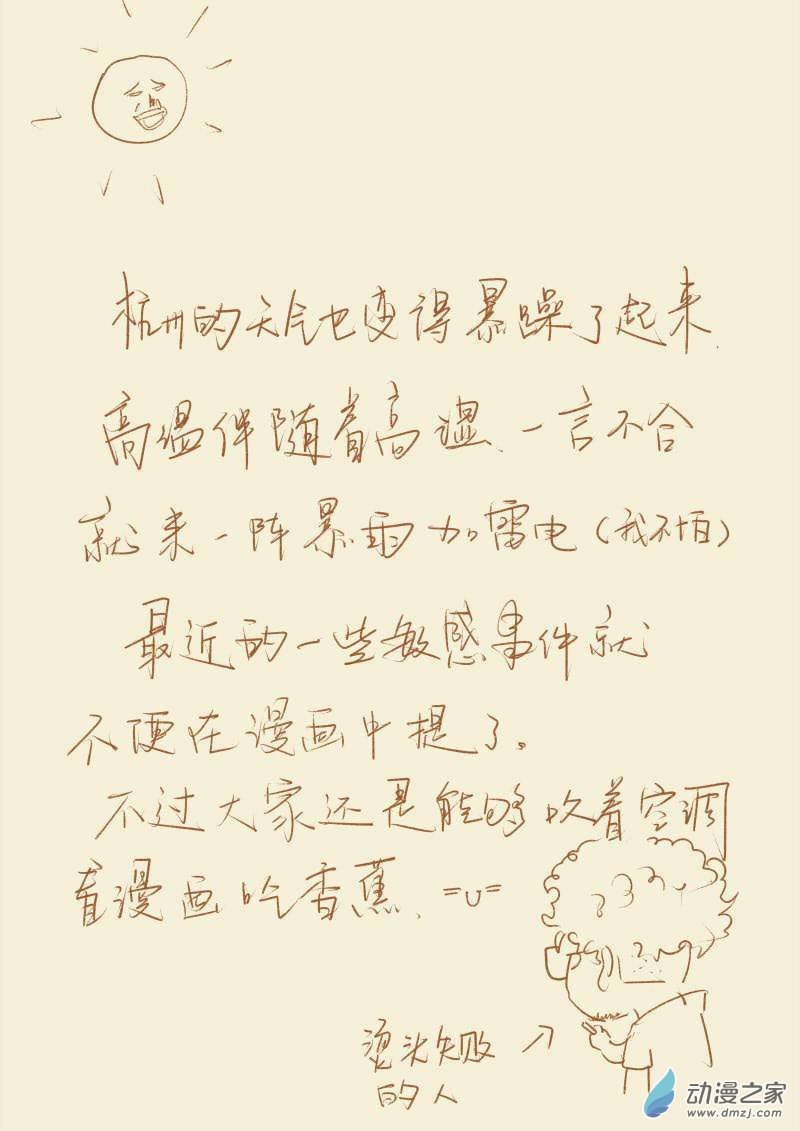 杭州的天气也变得暴躁了起来.
高温伴随着高湿、一言不合
就来一阵暴雨加雷电(我不怕)
最近的一些敏感事件就
不便在漫画中提了。
不过大家还是能够吹着空调
看漫画吃香蕉、=u=
烫头失败
的人
动漫之家
www.dmzj.com